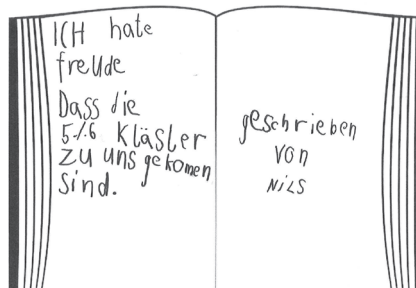 ICH hate
freude
Dass die
5./.6 Kläsler
zu uns gekomen
sind.
geschrieben
von
NiLS